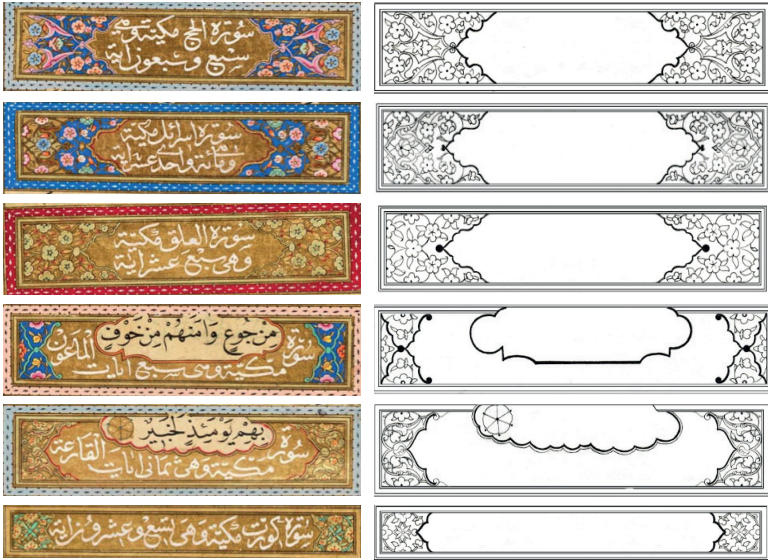 سورة الحج مكية وهي
سبع وسبعون آية
سورة اسرائيل مكية
ومائة واحدى عشر اية
سورة العلق مكية
وهى تسع عشر اية
من جوع وامنهم من خوف
سورة الماعون
مكية وهى سبع ايات
بهم يومئذ لخبير
سورة القارعة
مكية وهى ثمانى ايات
سورة كورت مكية وهى تسع وعشرون اية